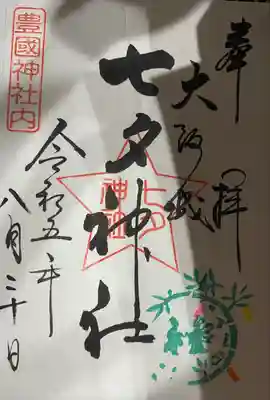 奉拝
大阪城
豊國神社内
七夕神社
七夕神社
令和五年
八月二十日